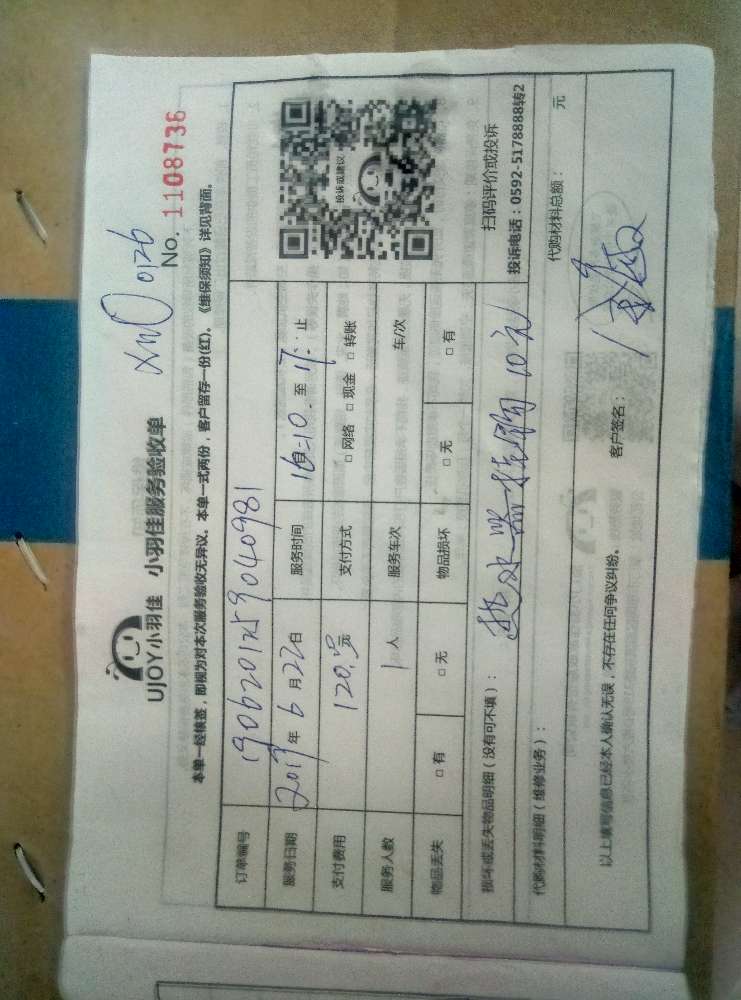 UJOY小羽佳 小羽佳服务验收单
No. 1108736
本单一经核签，即视为对本次服务验收无异议。本单一式两份，客户留存一份(红)，《维保须知》详见背面。
订单编号 1906201259040981
服务日期 2019年6月22日 服务时间 自16:10至17:止
支付费用 120.元 支付方式 □网络 □现金 □转账
服务人数 1人 服务车次 车/次
物品丢失 □有 □无 物品损坏 □无 □有
投诉或建议
扫码评价或投诉
投诉电话：0592-5178888转2
损坏或丢失物品明细（没有可不填）： 热水器 10元
代购材料明细（维修业务）： 代购材料总额： 元
以上填写信息已经本人确认无误，不存在任何争议纠纷。 客户签名：